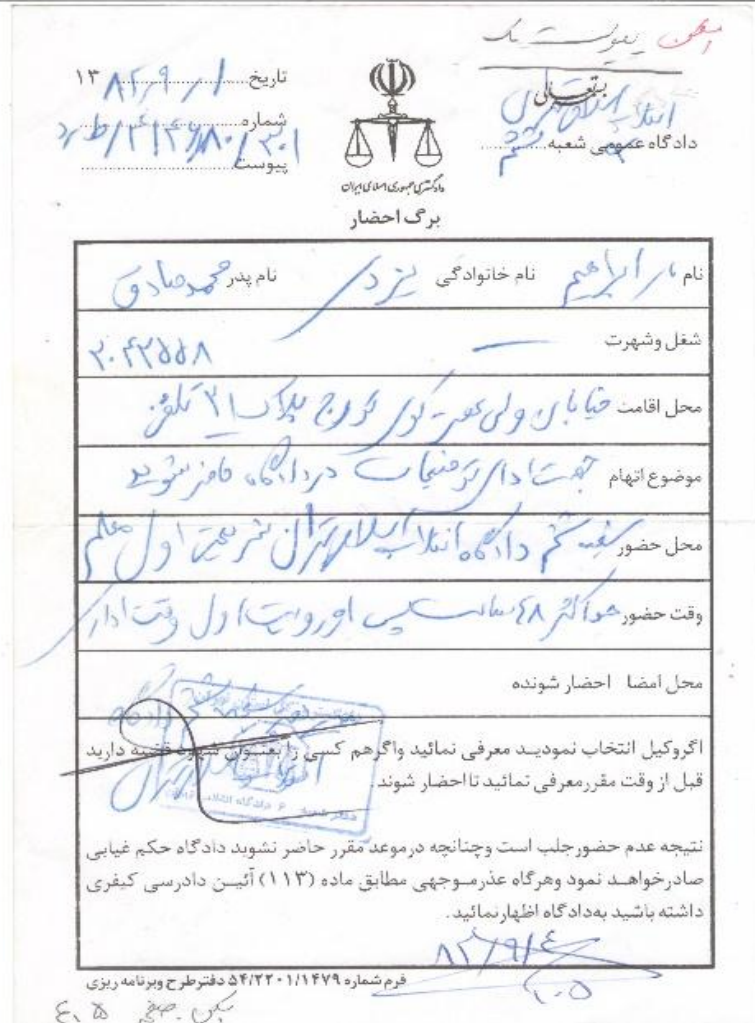 پیوست یک
بسمه تعالی
دادگاه عمومی شعبه ششم
انقلاب اسلامی تهران
تاریخ ۱۳۸۲/۹/۱
شماره
پیوست
دادگستری جمهوری اسلامی ایران
برگ احضار
نام ابراهیم نام خانوادگی یزدی نام پدر محمد صادق
شغل وشهرت
محل اقامت خیابان ولی عصر کوی تورج پلاک ۳۱ تلفن ۲۰۴۲۵۵۸
موضوع اتهام جهت ادای توضیحات در دادگاه حاضر شوید
محل حضور شعبه ششم دادگاه انقلاب اسلامی تهران شریعتی اول معلم
وقت حضور حداکثر ۴۸ ساعت پس از رویت اول وقت اداری
محل امضا احضار شونده
اگروکیل انتخاب نمودید معرفی نمائید واگرهم کسی را بعنوان شهود قضیه دارید
قبل از وقت مقررمعرفی نمائید تااحضار شوند.
نتیجه عدم حضورجلب است وچنانچه درموعد مقرر حاضر نشوید دادگاه حکم غیابی
صادرخواهد نمود وهرگاه عذرموجهی مطابق ماده (۱۱۳) آئین دادرسی کیفری
داشته باشید به‌دادگاه اظهارنمائید.
۸۲/۹/۴
فرم شماره ۵۴/۲۲۰۱/۱۴۷۹ دفترطرح وبرنامه ریزی